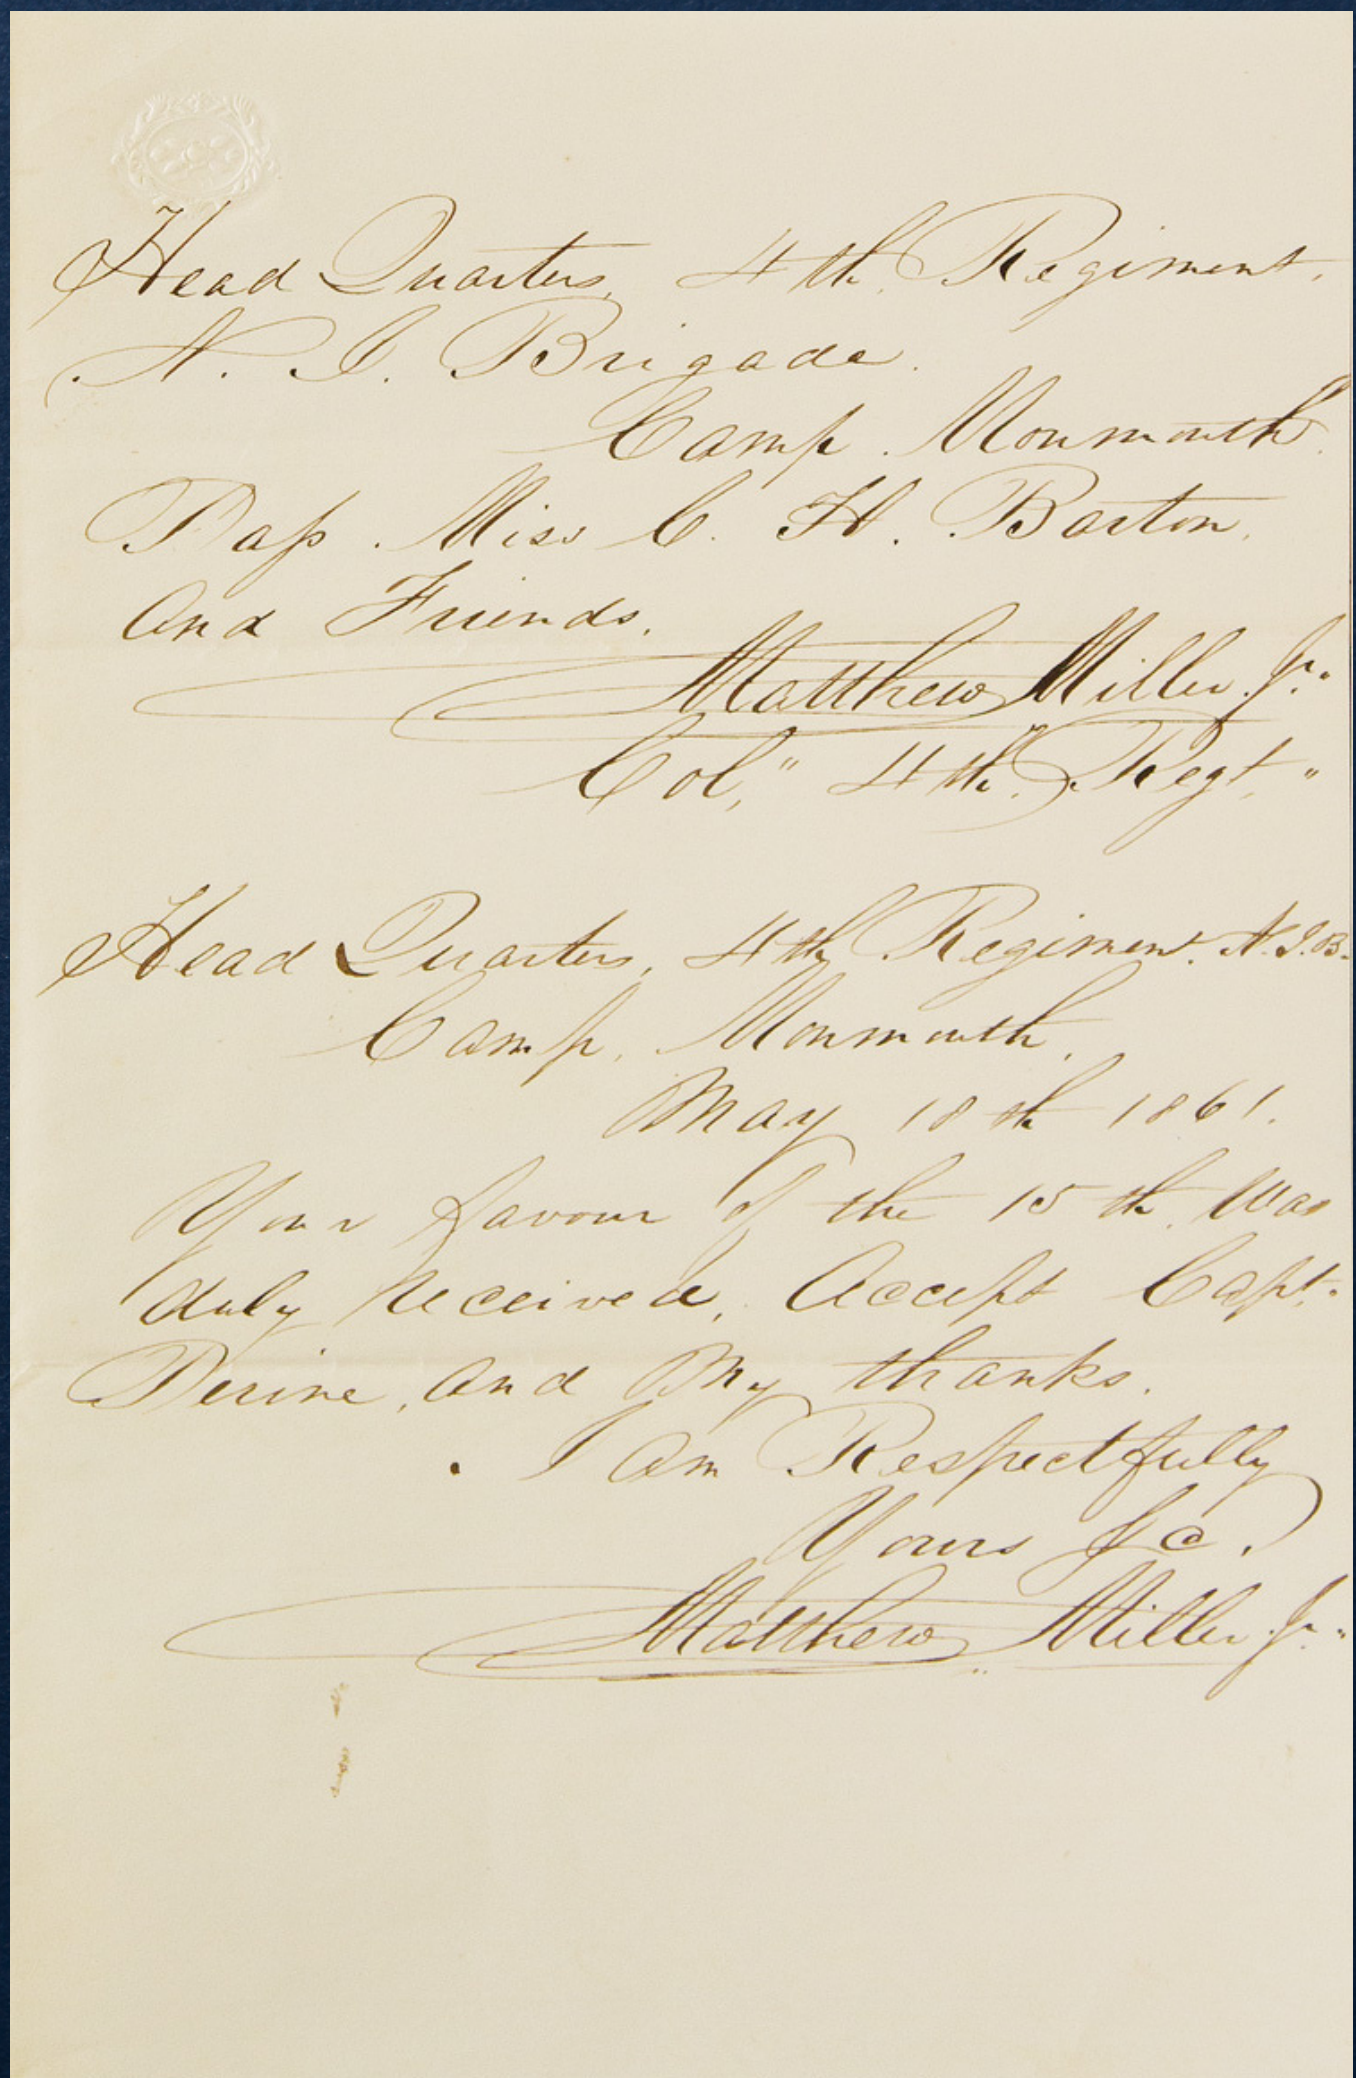 Head Quarters, 4th. Regiment.
N. J. Brigade.
Camp. Monmouth.
Pass. Miss C. H. Barton,
And Friends.
Matthew Miller Jr.
Col," 4th. Regt."
Head Quarters, 4th Regiment. N.J.B.
Camp, Monmouth.
May 18th 1861.
Your favour of the 15th. Was
duly Received. Accept Capt.
Perine, and My thanks.
I am Respectfully
Yours &c.
Matthew Miller Jr.